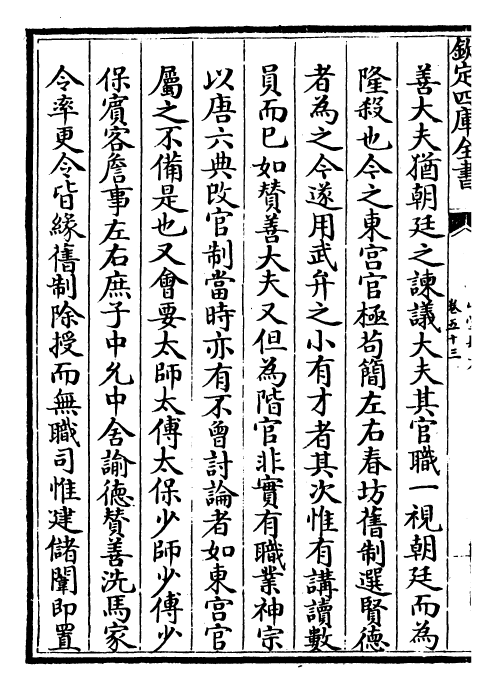 欽定四庫全書
卷五十三
善大夫猶朝廷之諫議大夫其官職一視朝廷而為
隆殺也今之東宮官極茍簡左右春坊舊制選賢德
者為之今遂用武弁之小有才者其次惟有講讀數
員而已如贊善大夫又但為階官非實有職業神宗
以唐六典改官制當時亦有不曾討論者如東宮官
屬之不備是也又會要太師太傅太保少師少傅少
保賓客詹事左右庶子中允中舍諭德贊善洗馬家
令率更令皆緣舊制除授而無職司惟建儲闈即置